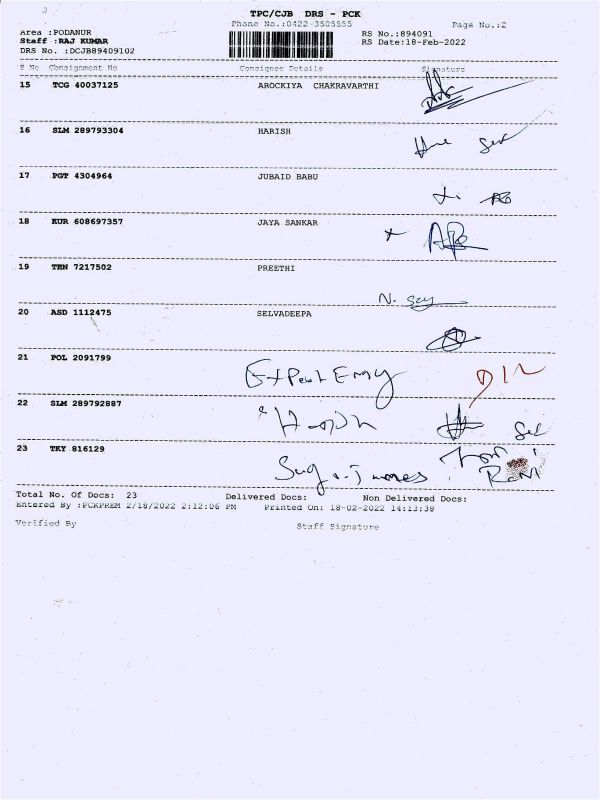 TPC/CJB DRS - PCK
Phone No.:0422-3505555 Page No.:2
Area :PODANUR RS No.:894091
Staff :RAJ KUMAR RS Date:18-Feb-2022
DRS No. :DCJB89409102
S No Consignment No Consignee Details Signature
15 TCG 40037125 AROCKIYA CHAKRAVARTHI
16 SLM 289793304 HARISH
17 PGT 4304964 JUBAID BABU
18 KUR 608697357 JAYA SANKAR
19 TEN 7217502 PREETHI
20 ASD 1112475 SELVADEEPA
21 POL 2091799
22 SLM 289792887
23 TKY 816129
Total No. Of Docs: 23 Delivered Docs: Non Delivered Docs:
Entered By :PCKPREM 2/18/2022 2:12:06 PM Printed On: 18-02-2022 14:13:38
Verified By Staff Signature